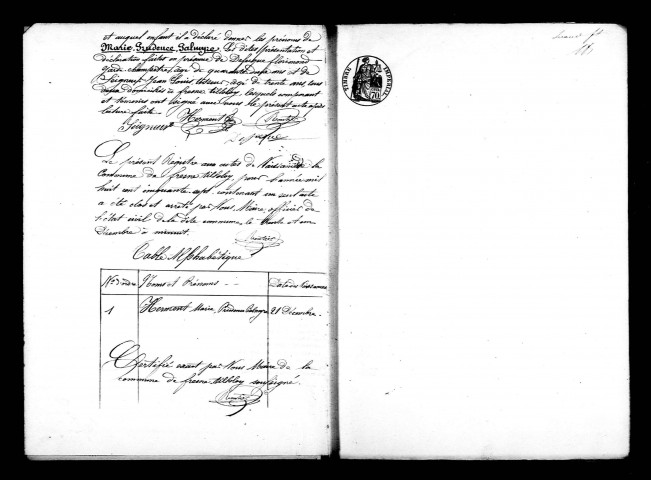 et auquel enfant il a déclaré donner les prénoms de
Marie Prudence Palmyre. Les dites présentation et
déclaration faites en présence de Defuque florimond
garde champêtre, âgé de quarante ans et de
Seigneur Jean Louis tisseur, âgé de trente ans, tous
deux domiciliés à fresne tilloloy, lesquels comparant
et témoins ont signé avec nous le présent acte après
lecture faite.
Hermant
Seigneur
Le présent Registre aux actes de Naissance de la
Commune de fresne tilloloy, pour l'année mil
huit cent cinquante sept, contenant un seul acte
a été clos et arrêté par Nous, Maire, officier de
l'état civil de la dite commune, le trente et un
Décembre à minuit.
Table Alphabétique
Nos d'ordre Noms et Prénoms Date des Naissances
1 Hermant Marie Prudence Palmyre 21 Décembre
Certifié exact par Nous Maire de la
commune de fresne tilloloy soussigné.
TIMBRE IMPERIAL